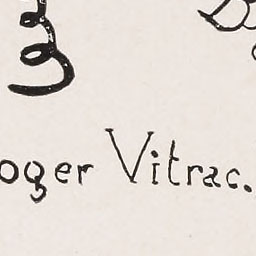 oger Vitrac.